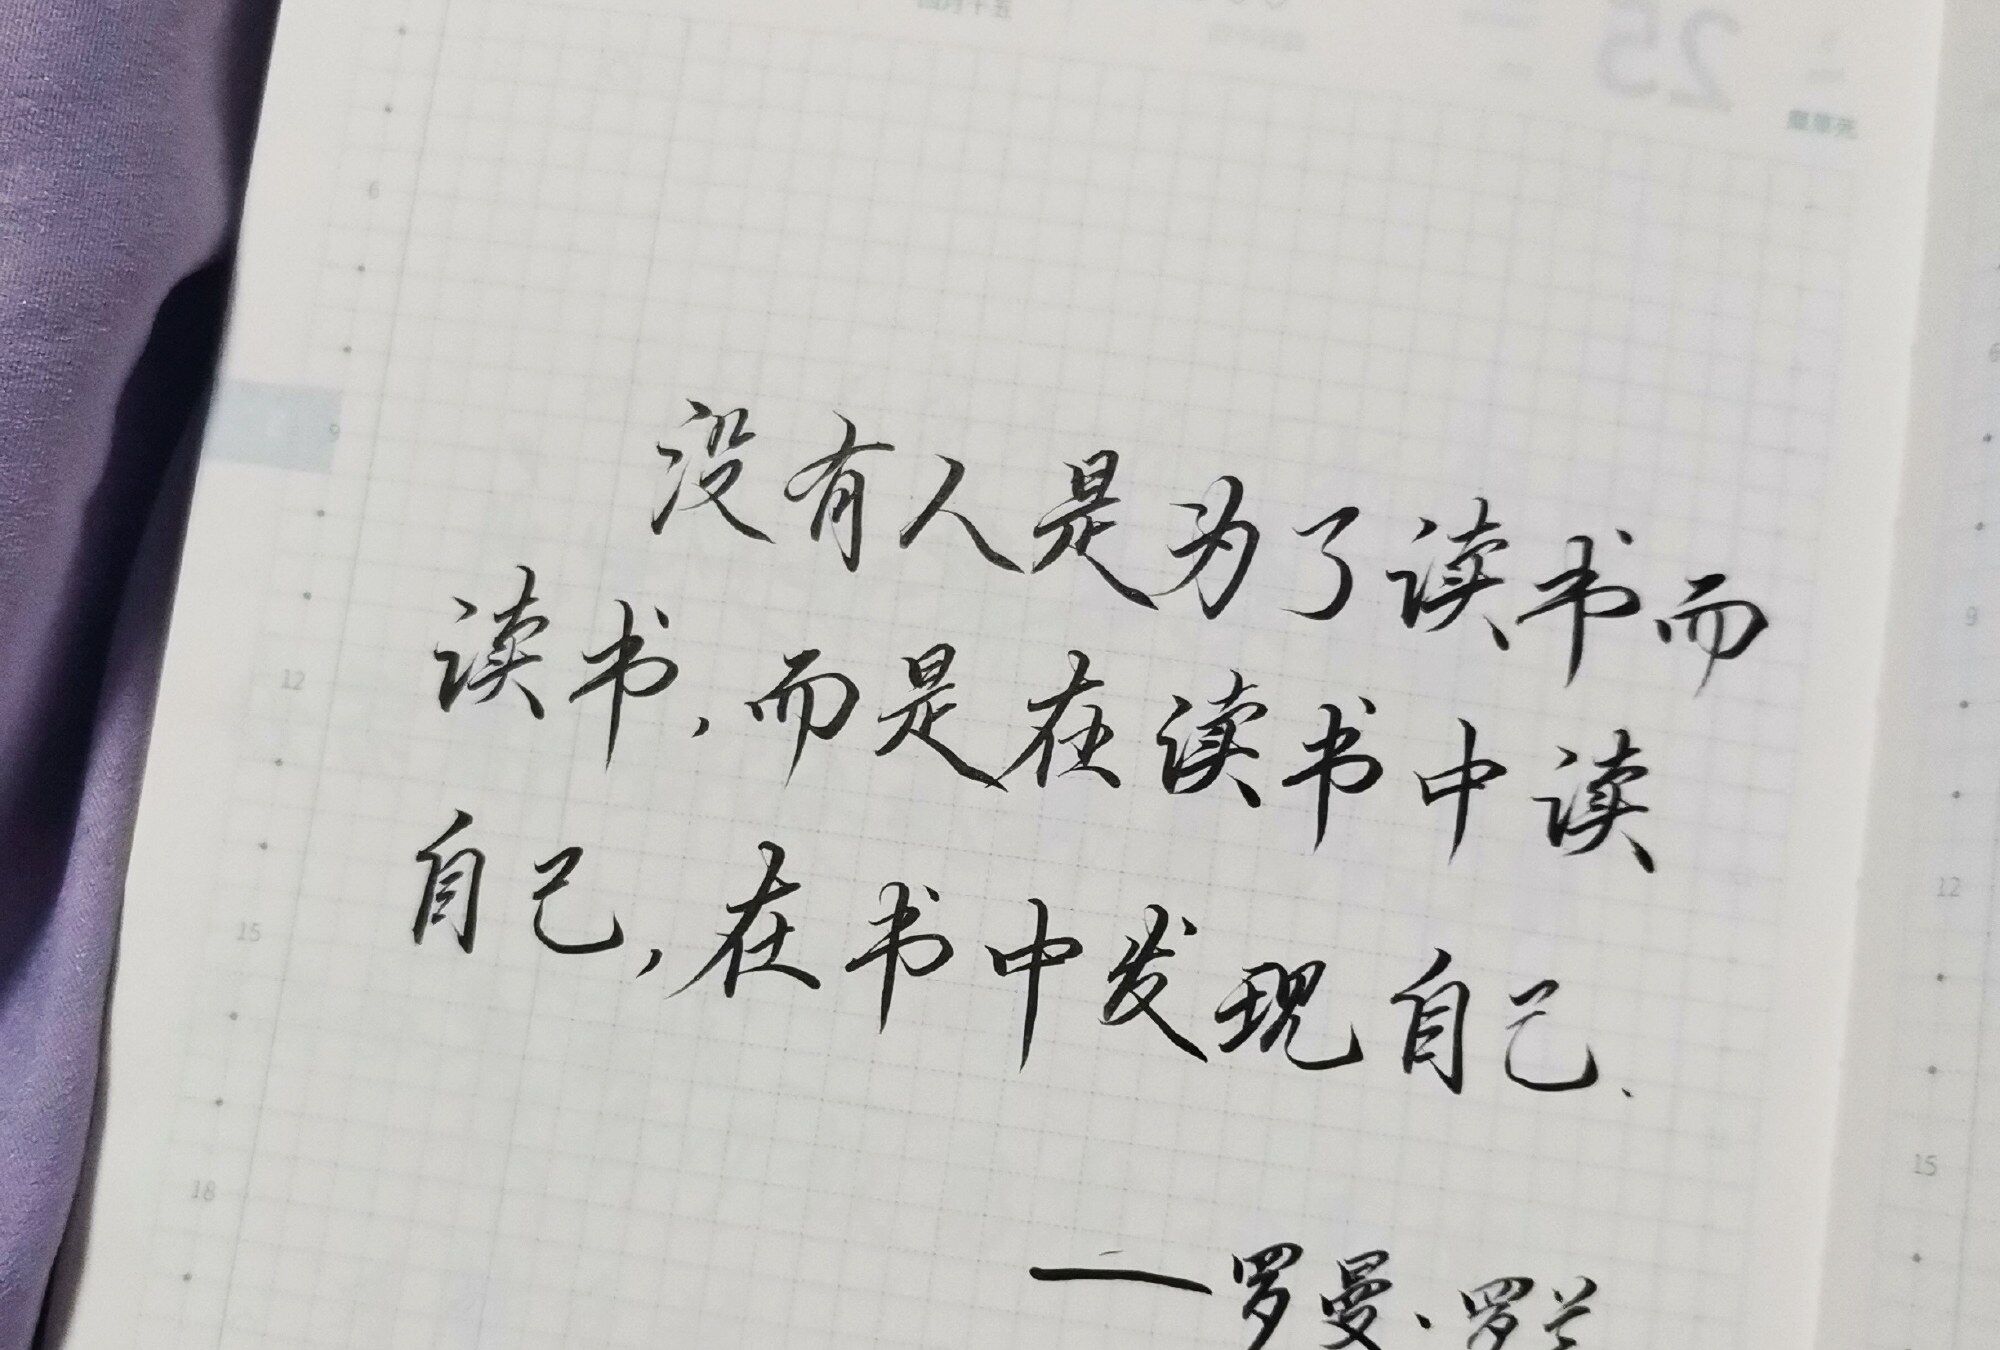 25
6
9
没有人是为了读书而
读书,而是在读书中读
自己,在书中发现自己.
——罗曼·罗兰
12
15
18
6
9
12
15